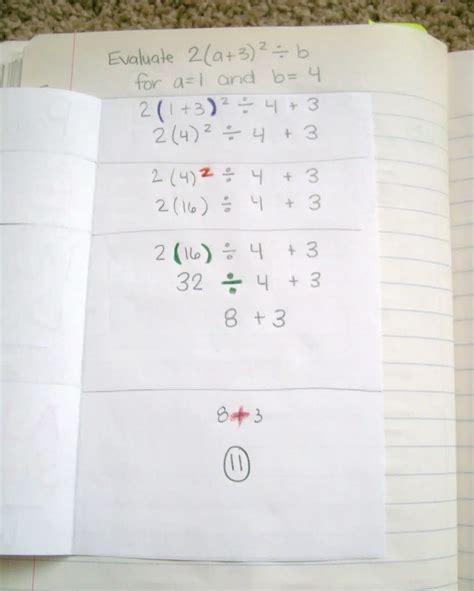 Evaluate 2(a+3)² ÷ b
for a=1 and b= 4
2(1+3)² ÷ 4 + 3
2(4)² ÷ 4 + 3
2(4)² ÷ 4 + 3
2(16) ÷ 4 + 3
2(16) ÷ 4 + 3
32 ÷ 4 + 3
8 + 3
8+3
11